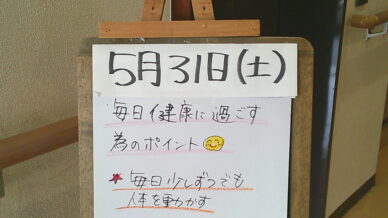 5月31日(土)
毎日健康に過ごす
為のポイント
★毎日少しずつでも
体を動かす